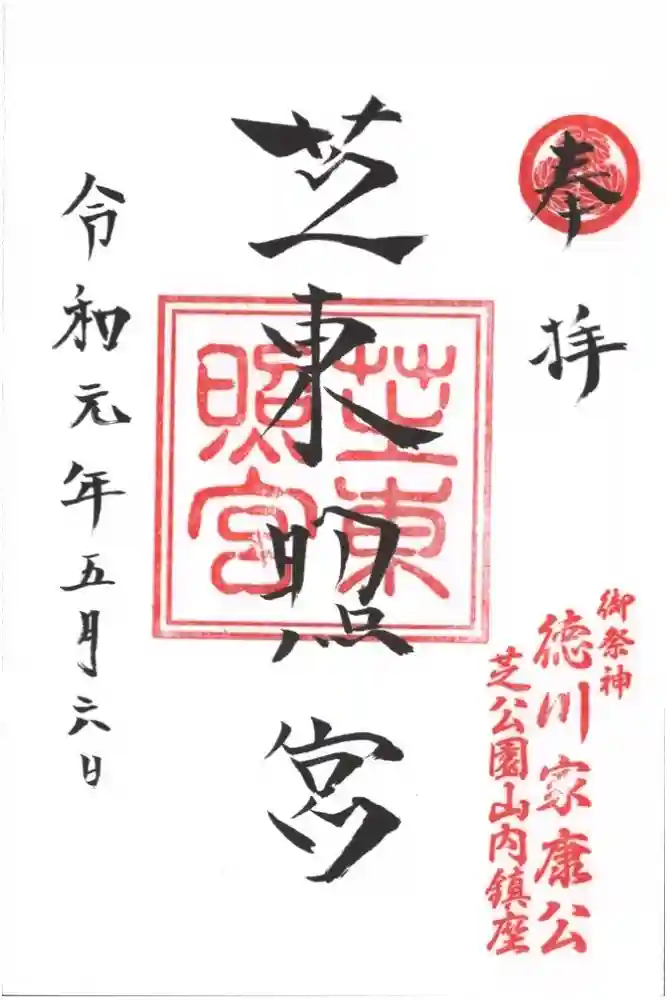 奉拝
御祭神
徳川家康公
芝公園山内鎮座
芝東照宮
芝東
照宮
令和元年五月六日